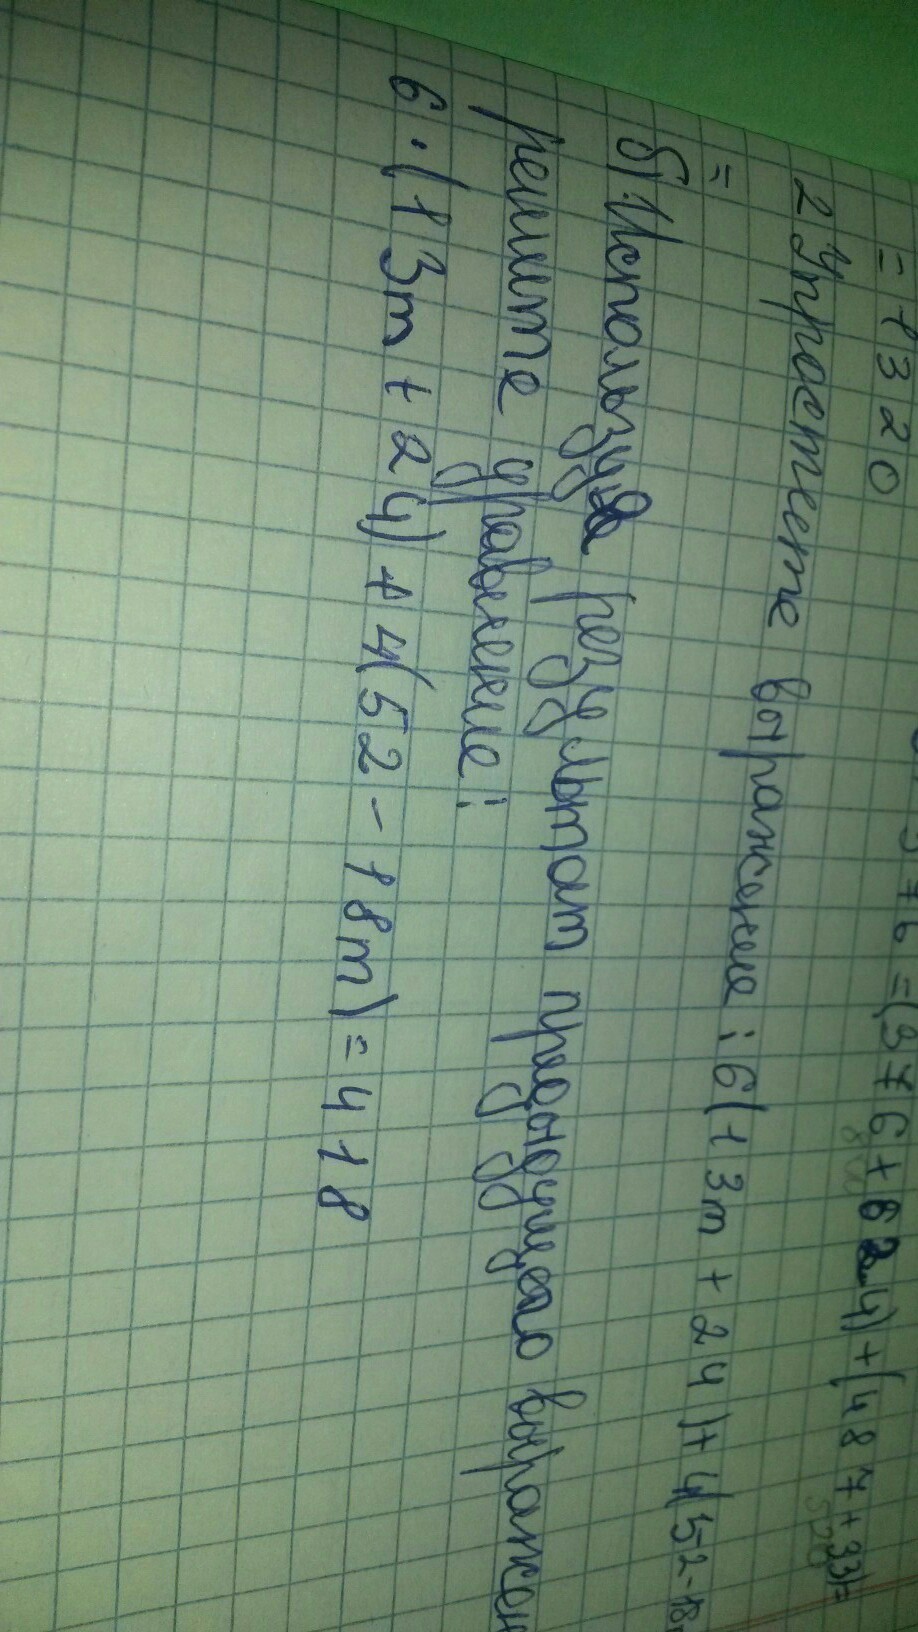 376 = (376 + 624) + (487 + 33) =
= 1320
2 Упростите выражение: 6(13m + 24) + 4(52 - 18
=
б) Используя результат предыдущего выражен
решите уравнение:
6 · (13m + 24) + 4(52 - 18m) = 418